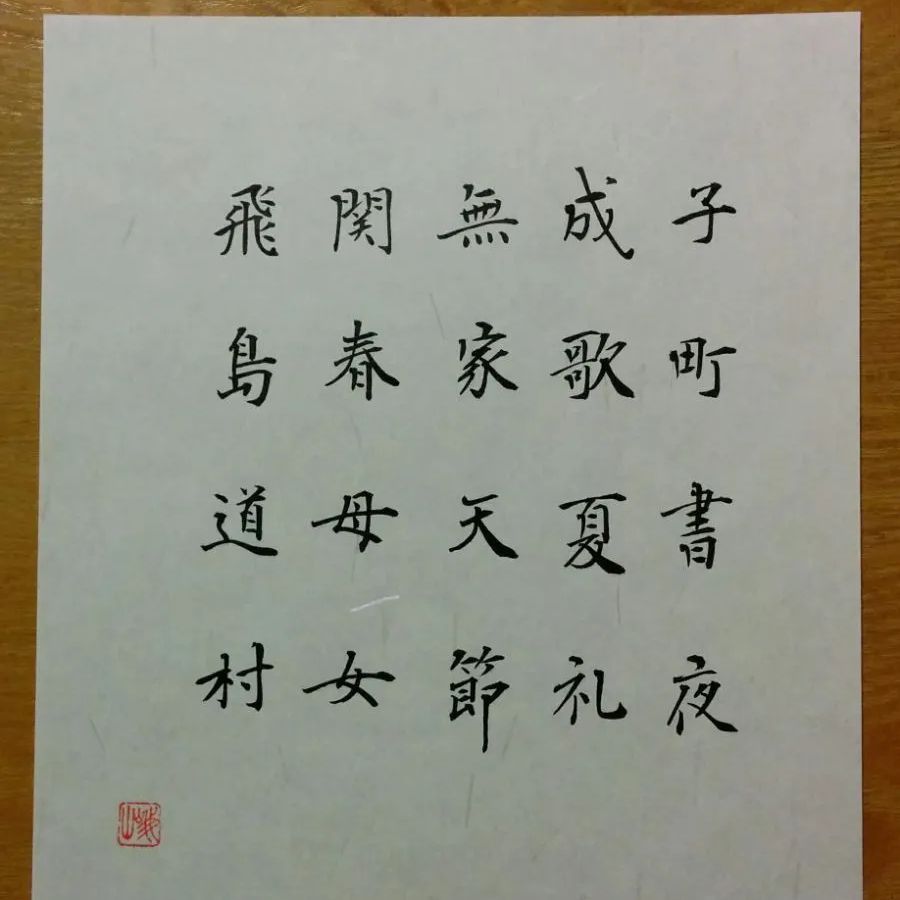 子町書夜
成歌夏礼
無家天節
関春母女
飛島道村